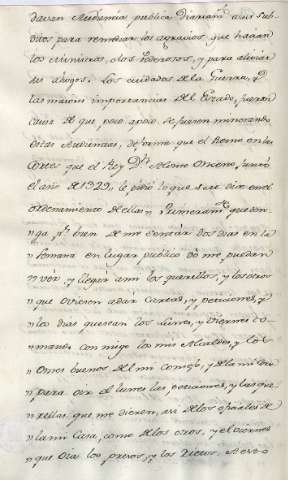 davan Audiencia publica Diariamte. a sus sub-
ditos para remediar los agravios que hacian
los ministros, o los Poderosos, y para aliviar
sus ahogos. Los cuidados de la Guerra, y
las maiores importancias del Estado, fueron
causa de que poco apoco, se fuesen minorando
estas Audiencias, de forma que el Reino en las
Cortes que el Rey Dn. Alonso Onceno, juntó
el año de 1329, le pidió lo que se sigue en el
ordenamiento de ellas " Primeramte. que ten-
ga pr. bien de me sentar dos dias en la
" semana en lugar publico do me puedan
" ver, y llegar ami los querellosos, y los otros
" que ovieren adar Cartas, y peticiones, y
" los dias que sean los Lunes, y Viernes to-
" mando con migo los mis Alcaldes, y los
" Omes buenos del mi consejo, y de la mi Corte
" para oir el lunes las peticiones, y las que-
" rellas, que me dieren, asi de los oficiales de
" la mi Casa, como de los otros, y el viernes
" que oia los presos, y los rieptos. A esto